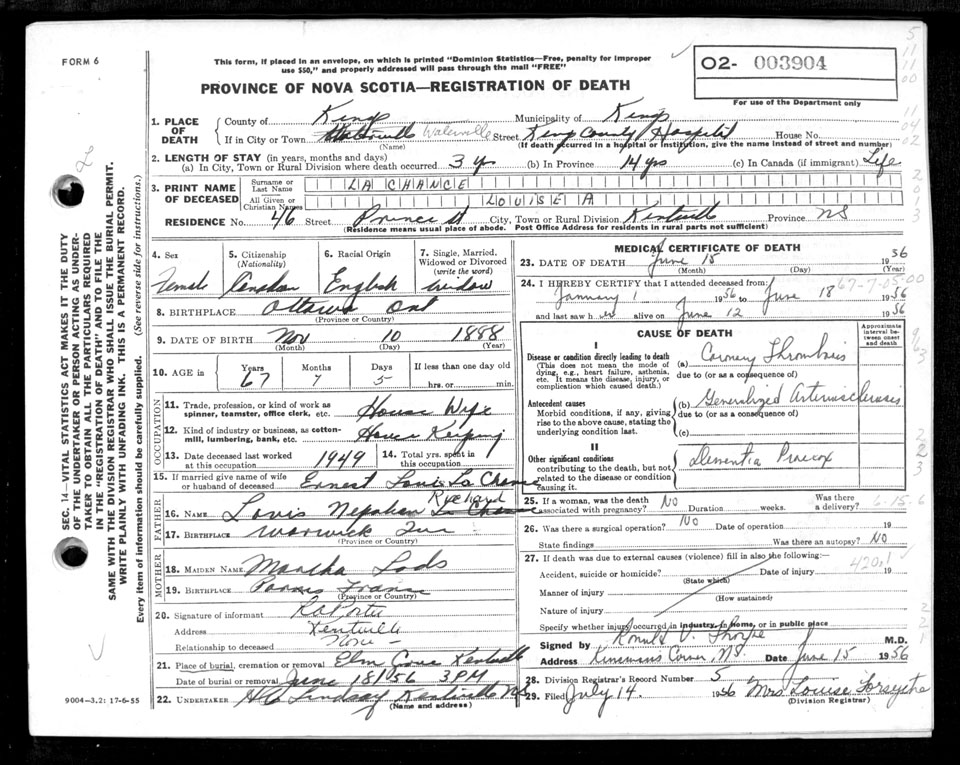 FORM 6
This form, if placed in an envelope, on which is printed "Dominion Statistics—Free, penalty for improper
use $50," and properly addressed will pass through the mail "FREE"
PROVINCE OF NOVA SCOTIA—REGISTRATION OF DEATH
O2- 003904
For use of the Department only
1. PLACE OF DEATH
County of Kings Municipality of Kings
If in City or Town Waterville Street Kings County Hospital House No.
(Name) (If death occurred in a hospital or institution, give the name instead of street and number)
2. LENGTH OF STAY (in years, months and days)
(a) In City, Town or Rural Division where death occurred 3 yrs (b) In Province 14 yrs (c) In Canada (if immigrant) Life
3. PRINT NAME OF DECEASED
Surname or Last Name LA CHANCE
All Given or Christian Names LOUISE A
RESIDENCE No. 46 Street Prince St City, Town or Rural Division Kentville Province NS
(Residence means usual place of abode. Post Office Address for residents in rural parts not sufficient)
4. Sex Female
5. Citizenship (Nationality) Canadian
6. Racial Origin English
7. Single, Married, Widowed or Divorced (write the word) widow
8. BIRTHPLACE Ottawa Ont
(Province or Country)
9. DATE OF BIRTH Nov 10 1888
(Month) (Day) (Year)
10. AGE in Years 67 Months 7 Days 5 If less than one day hrs. or min.
OCCUPATION
11. Trade, profession, or kind of work as spinner, teamster, office clerk, etc. House Wife
12. Kind of industry or business, as cotton-mill, lumbering, bank, etc. House Keeping
13. Date deceased last worked at this occupation 1949
14. Total yrs. spent in this occupation
15. If married give name of wife or husband of deceased Ernest Louis La Chance
FATHER
16. NAME Louis Richard
17. BIRTHPLACE Warwick Que
(Province or Country)
MOTHER
18. MAIDEN NAME Martha Lods
19. BIRTHPLACE France
(Province or Country)
20. Signature of informant R A Porter
Address Kentville
Relationship to deceased None
21. Place of burial, cremation or removal Elm Grove Kentville
Date of burial or removal June 18/56 3 PM
22. UNDERTAKER Lindsay Kentville NS
(Name and address)
MEDICAL CERTIFICATE OF DEATH
23. DATE OF DEATH June 15 1956
(Month) (Day) (Year)
24. I HEREBY CERTIFY that I attended deceased from:
January 1 1956 to June 1956
and last saw her alive on June 12 1956
CAUSE OF DEATH
Approximate interval between onset and death
I
Disease or condition directly leading to death
(This does not mean the mode of dying, e.g., heart failure, asthenia, etc. It means the disease, injury, or complication which caused death.)
(a) Coronary Thrombosis
due to (or as a consequence of)
Antecedent causes
Morbid conditions, if any, giving rise to the above cause, stating the underlying condition last.
(b) Generalized Arteriosclerosis
due to (or as a consequence of)
(c)
II
Other significant conditions
contributing to the death, but not related to the disease or condition causing it.
Dementia Praecox
25. If a woman, was the death associated with pregnancy? No Duration weeks. Was there a delivery?
26. Was there a surgical operation? No Date of operation 19
State findings Was there an autopsy? No
27. If death was due to external causes (violence) fill in also the following:—
Accident, suicide or homicide? Date of injury 19
(State which)
420.1
Manner of injury
(How sustained)
Nature of injury
Specify whether injury occurred in industry, in home, or in public place
Signed by Ronald V. Thorpe M.D.
Address Kinsmans Corner, N.S. Date June 15 1956
28. Division Registrar's Record Number 5
29. Filed July 14 1956 Mrs Louise Forsythe
(Division Registrar)
SEC. 14—VITAL STATISTICS ACT MAKES IT THE DUTY
OF THE UNDERTAKER OR PERSON ACTING AS UNDER-
TAKER TO OBTAIN ALL THE PARTICULARS REQUIRED
IN THE "REGISTRATION OF DEATH" AND TO FILE THE
SAME WITH THE DIVISION REGISTRAR WHO SHALL ISSUE THE BURIAL PERMIT.
WRITE PLAINLY WITH UNFADING INK. THIS IS A PERMANENT RECORD.
Every item of information should be carefully supplied. (See reverse side for instructions.)
9004—3.2: 17-6-55